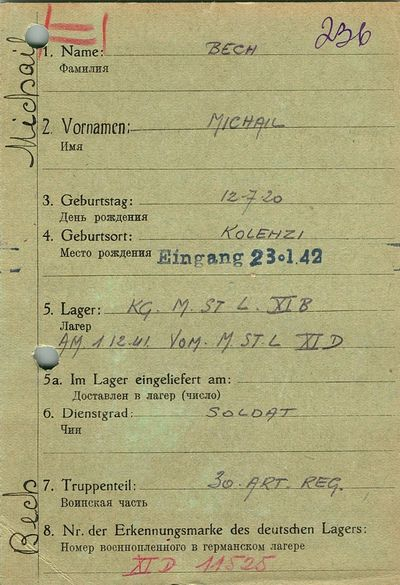 236
Michail
1. Name: BECH
Фамилия
2. Vornamen: MICHAIL
Имя
3. Geburtstag: 12-7-20
День рождения
4. Geburtsort: KOLENZI
Место рождения Eingang 23.1.42
5. Lager: KG. M. ST L. XI B
Лагерь
AM 1.12.41. VOM. M. ST. L XI D
5a. Im Lager eingeliefert am:
Доставлен в лагерь (число)
6. Dienstgrad: SOLDAT
Чин
7. Truppenteil: 30. ART. REG.
Воинская часть
Bech
8. Nr. der Erkennungsmarke des deutschen Lagers:
Номер военнопленного в германском лагере
XI D 11525